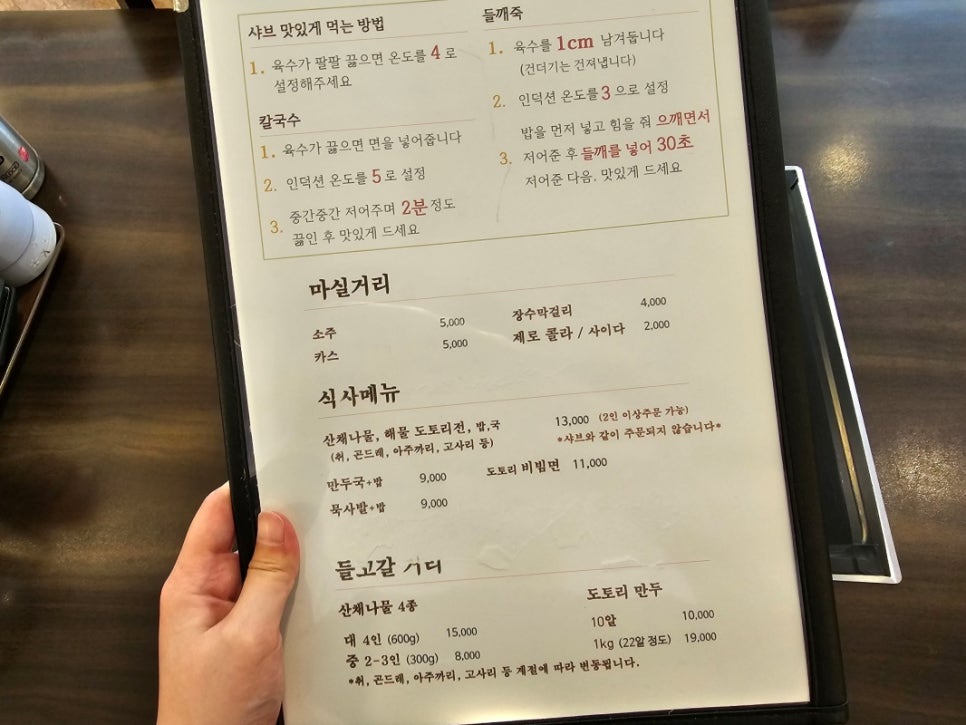 샤브 맛있게 먹는 방법
1. 육수가 팔팔 끓으면 온도를 4 로
설정해주세요
칼국수
1. 육수가 끓으면 면을 넣어줍니다
2. 인덕션 온도를 5 로 설정
3. 중간중간 저어주며 2분 정도
끓인 후 맛있게 드세요
들깨죽
1. 육수를 1cm 남겨둡니다
(건더기는 건져냅니다)
2. 인덕션 온도를 3 으로 설정
밥을 먼저 넣고 힘을 줘 으깨면서
3. 저어준 후 들깨를 넣어 30초
저어준 다음. 맛있게 드세요
마실거리
소주 5,000
카스 5,000
장수막걸리 4,000
제로 콜라 / 사이다 2,000
식사메뉴
산채나물, 해물 도토리전, 밥,국 13,000 (2인 이상주문 가능)
(취, 곤드레, 아주까리, 고사리 등) *샤브와 같이 주문되지 않습니다*
만두국+밥 9,000
도토리 비빔면 11,000
묵사발+밥 9,000
들고갈 거리
산채나물 4종
대 4인 (600g) 15,000
중 2-3인 (300g) 8,000
도토리 만두
10알 10,000
1kg (22알 정도) 19,000
*취, 곤드레, 아주까리, 고사리 등 계절에 따라 변동됩니다.